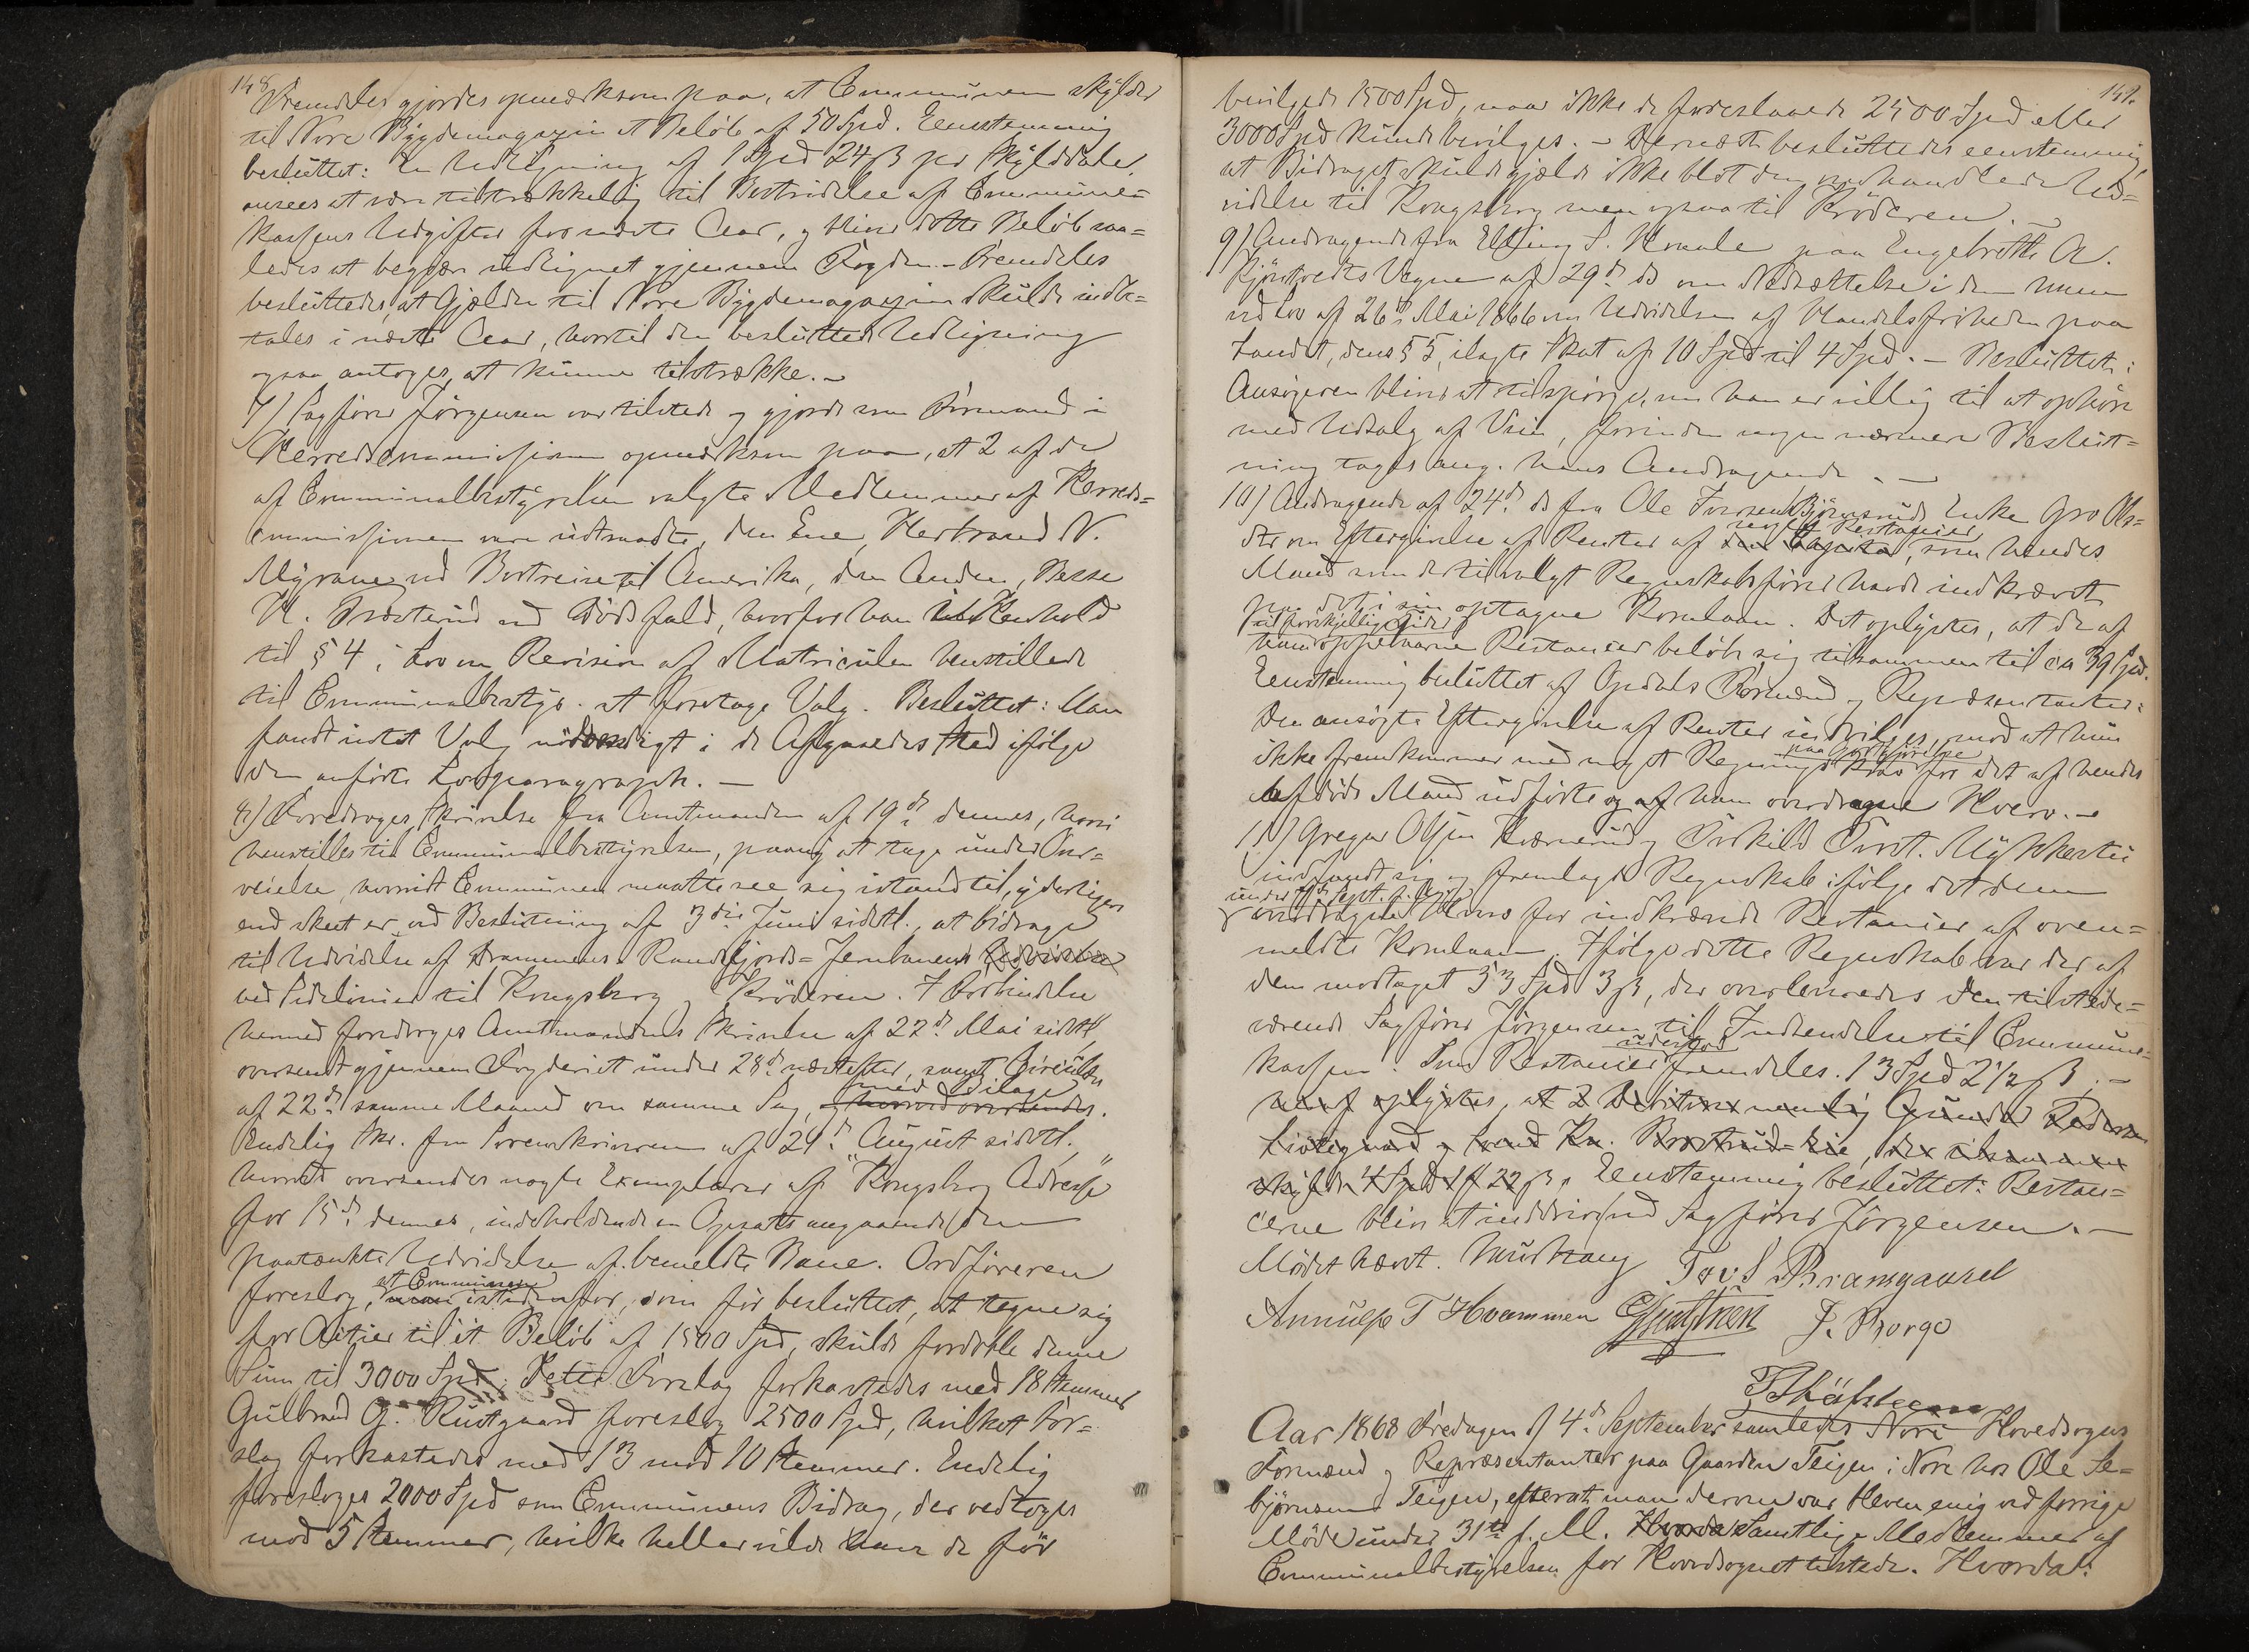 148
Fremdeles gjordes opmærksom paa, at Communen skylder
til Nore Bygdemagazin et Beløb af 50 Spd. Eenstemmig
besluttet: En Udligning af 1 Spd 24 β pr Skylddaler
ansees at være tilstrækkelig til Bestridelse af Commune=
kassens Udgifter for næste Aar, og bliver dette Beløb saa=
ledes at begjære udlignet gjennem Fogden. – Fremdeles
besluttedes, at Gjælden til Nore Bygdemagazin skulde indbe=
tales i næste Aar, hvortil den besluttede Udligning
ogsaa antoges at kunne tilstrække. –
7) Sagfører Jørgensen var tilstede og gjorde som Formand i
Herredscommissionen opmærksom paa, at 2 af de
af Communalbestyrelsen valgte Medlemmer af Herreds=
commissionen vare udtraadte, den Ene, Herbrand N.
Myrane ved Bortreise til Amerika, den Anden, Besse
H. Træterud ved Dødsfald, hvorfor han i Henhold
til § 4 i Lov om Revision af Matriculen henstillede
til Communalbestyr. at foretage Valg. Besluttet: Man
fandt intet Valg nødvendigt i de Afgaaedes Sted ifølge
den anførte Lovparagraph. –
8) Foredroges Skrivelse fra Amtmanden af 19de dennes, hvori
henstilles til Communalbestyrelsen, paany at tage under Over=
veielse, hvorvidt Communen maatte see sig istand til, yderligere
end skeet er ved Beslutning af 3die Juni sidstl., at bidrage
til Udvidelse af Drammens-Randsfjords=Jernbanen Udvidelse
ved Sidelinier til Kongsberg og Krøderen. I Forbindelse
hermed foredroges Amtmandens Skrivelse af 22de Mai sidstl,
oversendt gjennem Fogderiet under 28de næstefter, samt Circulær
med Bilage
af 22de samme Maaned om samme Sag, og hvorved oversendes.
Endelig Skr. fra Sorenskriveren af 21de August sidstl.,
hvorved oversendes nogle Exemplarer af "Kongsberg Adresse"
for 15de dennes, indeholdende en Opsats angaaende den
paatænkte Udvidelse af bemeldte Bane. Ordføreren
at Communen
foreslog, man istedenfor, som før besluttet, at tegne sig
for Actier til et Beløb af 1500 Spd, skulde fordoble denne
Sum til 3000 Spd. Dette Forslag forkastedes med 18 Stemmer
Gulbrand G. Rustgaard foreslog 2500 Spd, hvilket For=
slag forkastedes med 13 mod 10 Stemmer. Endelig
foresloges 2000 Spd som Communens Bidrag, der vedtoges
mod 5 Stemmer, hvilke heller vilde have de før
bevilgede 1500 Spd, naar ikke de foreslaaede 2500 Spd eller
3000 Spd kunde bevilges. – Dernæst besluttedes eenstemmig,
at Bidraget skulde gjælde ikke blot den omhandlede Ud=
videlse til Kongsberg men ogsaa til Krøderen. –
9) Andragende fra Elling S. Hvaale paa Engebreth A.
Vegne af 29de ds om Nedsættelse i den ham
ved Lov af 26de Mai 1866 om Udvidelsen af Handelsfriheden paa
Landet, dens § 5, ilagte Skat af 10 Spd til 4 Spd. – Besluttet:
Ansøgeren bliver at tilspørge, om han er villig til at ophøre
med Udsalg af Viin, forinden nogen nærmere Beslut=
ning tages ang. hans Andragende. –
10) Andragende af 24de ds fra Ole Bjørnsruds Enke Gro Ols=
Restancer
dtr om Eftergivelse af Renter af, som hendes
Mand som dertil valgt Regnskabsfører havde indkrævet
paa det i sin optagne Kornlaan. Det oplystes, at de af
til forskjellige Tider
ham oppebaarne Restancer beløb sig tilsammen til ca 39 Spd.
Eenstemmig besluttet af Opdals Formænd og Repræsentanter:
Den ansøgte Eftergivelse af Renter indvilges, mod at hun
paa Godtgjørelse
ikke fremkommer med noget Regnings Krav for det af hendes
afdøde Mand udførte og af ham overdragne Hverv. –
11) Gregar Olsen Kværnerud og Torkild Torst. Mykkestu
indfandt sig og fremlagde Regnskab ifølge det dem
under Sept. f. A.
overdragne Hverv for indkrævede Restancer af oven=
meldte Kornlaan. Ifølge dette Regnskab var der af
dem modtaget 53 Spd 3 β, der overleveredes den tilstede=
værende Sagfører Jørgensen til Indsendelse til Commune=
udestod
kassen. Som Restancer fremdeles 13 Spd 2½ β. –
oplystes, at 2 Debitorer nemlig Gunder Pedersen
Livsgaard og Svend Kn. Brostrud=eie, der tilsammen
skylder 4 Spd 22 β. Eenstemmig besluttet: Restan=
cerne bliver at inddrive ved Sagfører Jørgensen. –
Mødet hævet. Tov S Bramgaarel
Annulf T Hvammen J. Borge
Aar 1868 Fredagen d 4de September samledes Nore Hovedsogns
Formænd og Repræsentanter paa Gaarden Teigen i Nore hos Ole Se=
bjørnsen Teigen, efterat man derom var bleven enig ved forrige
Møde under 31te f. M. Hvorda Samtlige Medlemmer af
Communalbestyrelsen for Hovedsognet tilstede. Hvorda: